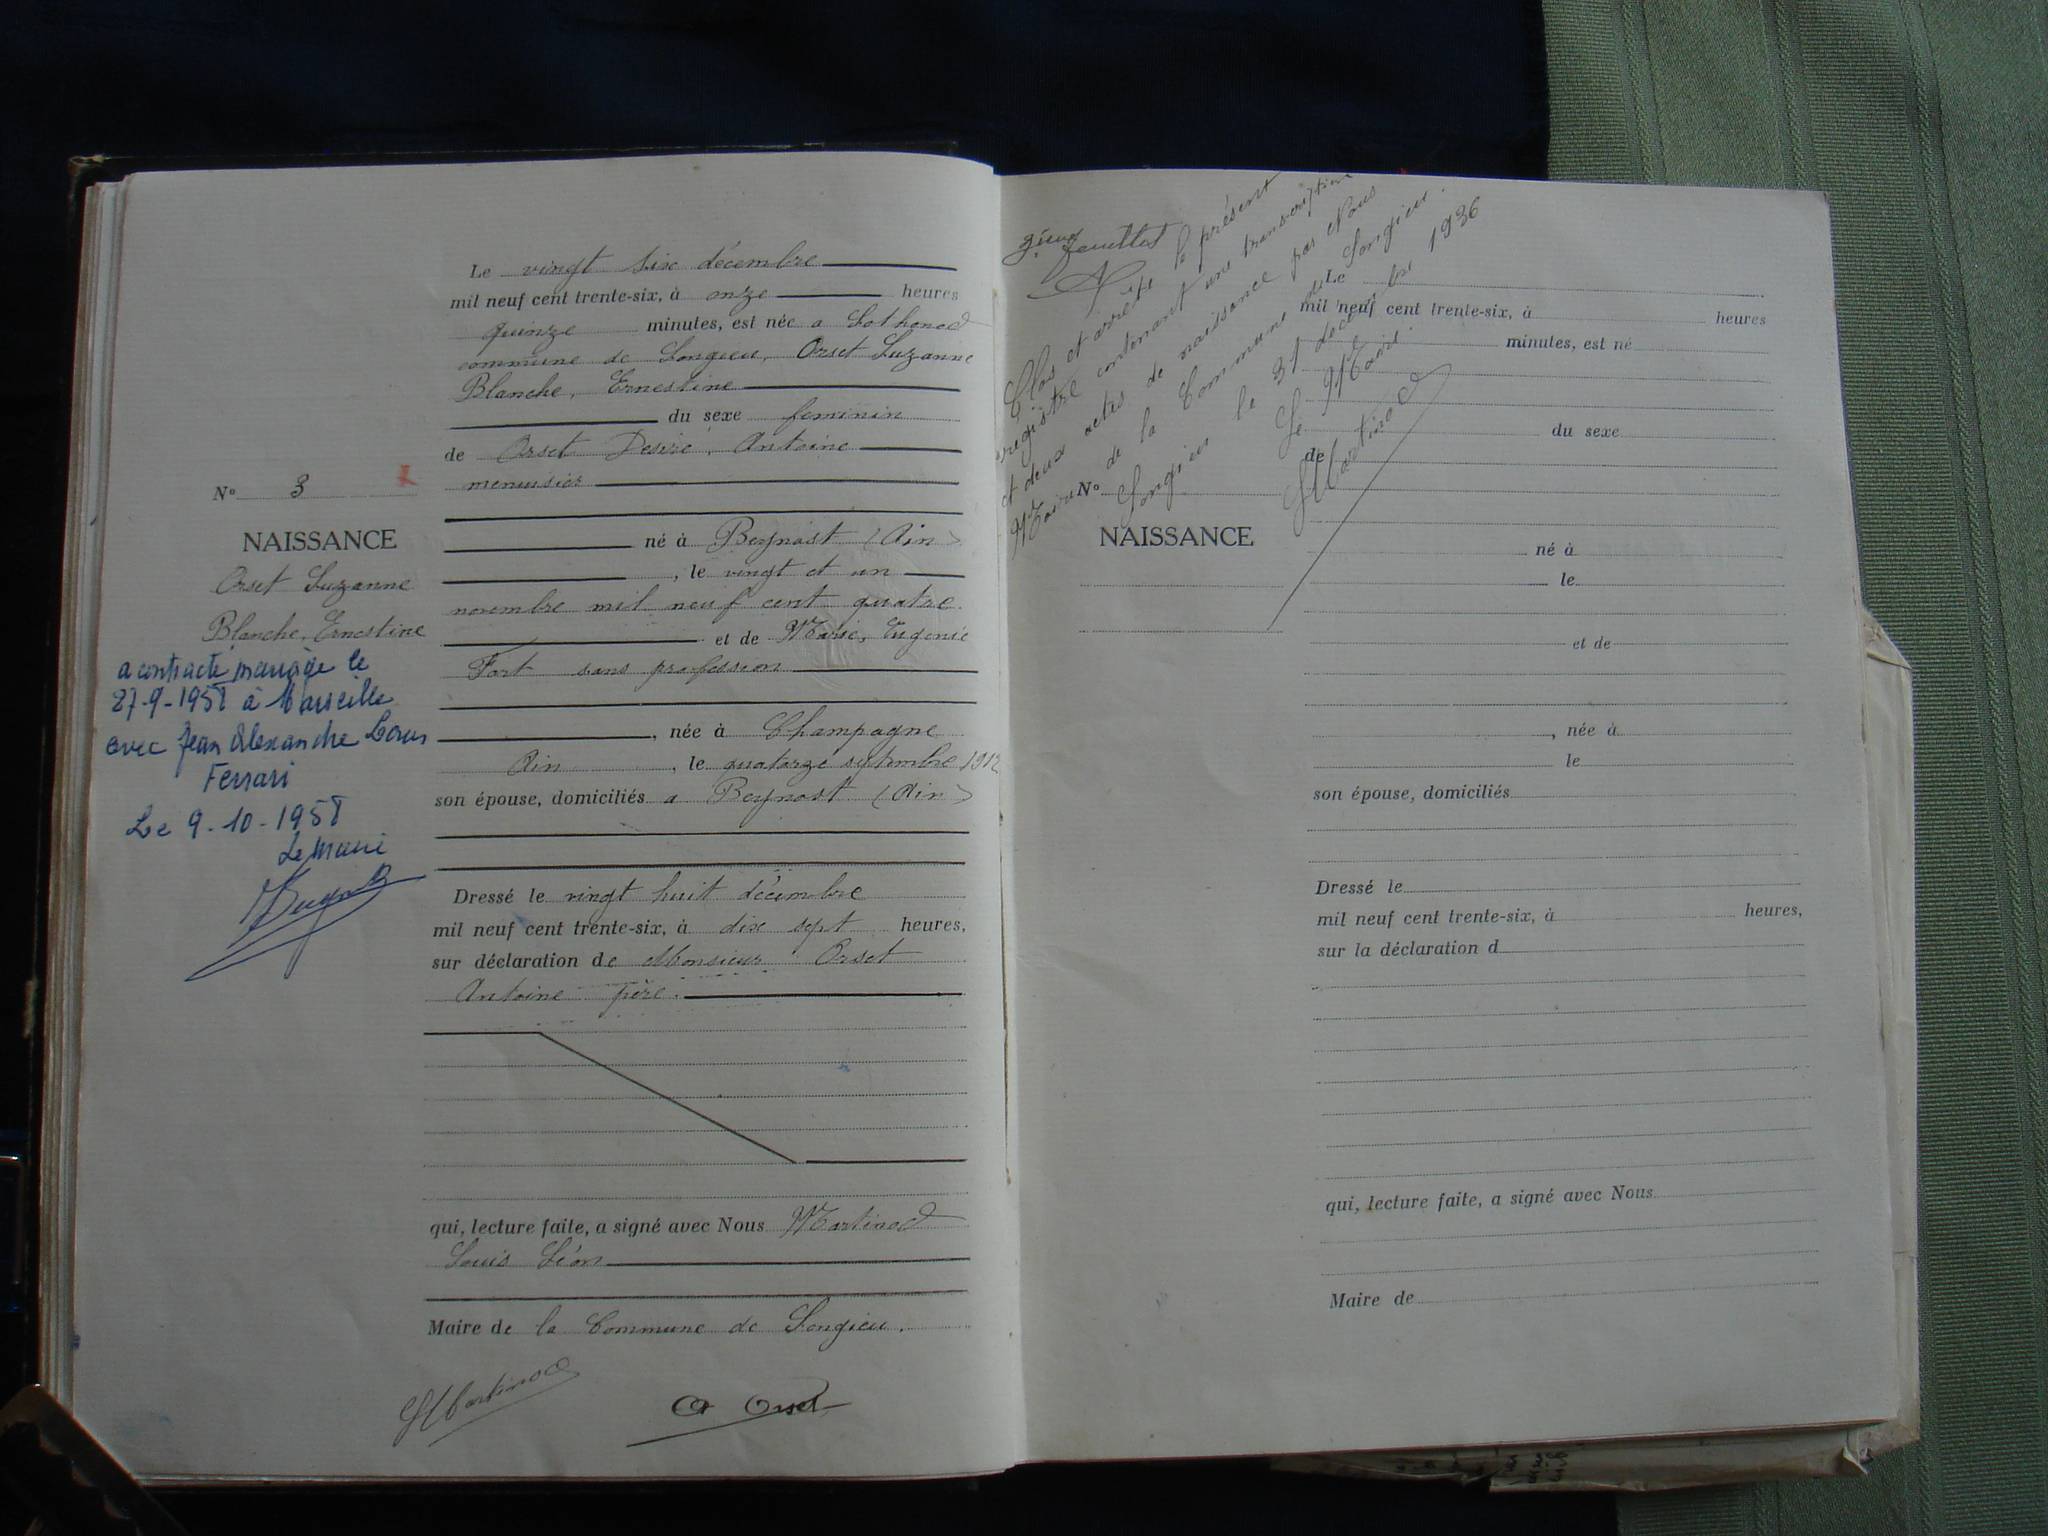 Le vingt six décembre
mil neuf cent trente-six, à onze heures
quinze minutes, est née a Lothonod
commune de Songieu, Orset Suzanne
Blanche, Ernestine
du sexe feminin
de Orset Desiré, Antoine
menuisier
né à Beynost (Ain)
, le vingt et un
novembre mil neuf cent quatre
et de Marie, Eugenie
Fort sans profession
, née à Champagne
Ain, le quatorze septembre 1912
son épouse, domiciliés a Beynost (Ain)
Dressé le vingt huit décembre
mil neuf cent trente-six, à dix sept heures,
sur déclaration de Monsieur Orset
Antoine père.
qui, lecture faite, a signé avec Nous Martinod
Louis Léon
Maire de la Commune de Songieu.
Martinod
Orset
No 3
NAISSANCE
Orset Suzanne
Blanche, Ernestine
a contracté mariage le
27-9-1958 à Marseille
avec Jean Alexandre Louis
Ferrari
Le 9-10-1958
Le Maire
feuillet
Clos et arrêté le présent
registre contenant une transcription
et deux actes de naissance par Nous
Maire de la Commune de Songieu.
Songieu le 31 décembre 1936
Le Maire
Martinod
No
NAISSANCE
Le
mil neuf cent trente-six, à heures
minutes, est né
du sexe
de
né à
le
et de
, née à
le
son épouse, domiciliés
Dressé le
mil neuf cent trente-six, à heures,
sur la déclaration d
qui, lecture faite, a signé avec Nous
Maire de